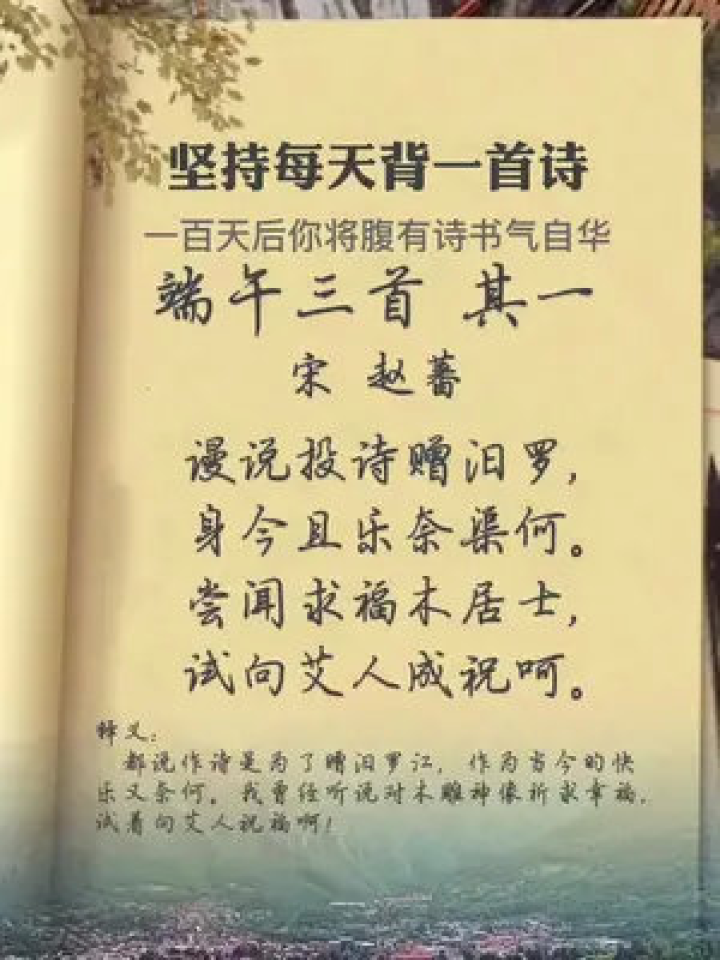 坚持每天背一首诗
一百天后你将腹有诗书气自华
端午三首 其一
宋 赵蕃
谩说投诗赠汨罗，
身今且乐奈渠何。
尝闻求福木居士，
试向艾人成祝呵。
释义：
都说作诗是为了赠汨罗江，作为当今的快
乐又奈何。我曾经听说对木雕神像祈求幸福，
试着向艾人祝福啊！